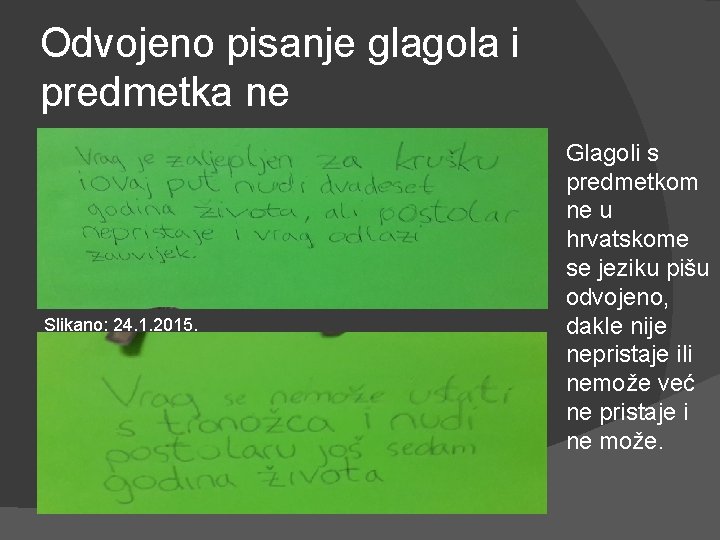 Odvojeno pisanje glagola i
predmetka ne
Vrag je zaljepljen za krušku
iovaj put nudi dvadeset
godina života, ali postolar
nepristaje i vrag odlazi
zauvijek.
Slikano: 24.1.2015.
Vrag se nemože ustati
s tronožca i nudi
postolaru još sedam
godina života
Glagoli s
predmetkom
ne u
hrvatskome
se jeziku pišu
odvojeno,
dakle nije
nepristaje ili
nemože već
ne pristaje i
ne može.